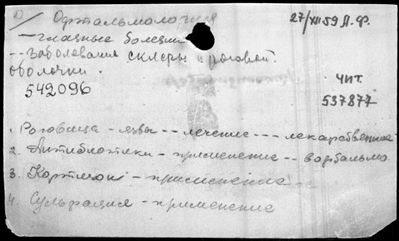 Офтальмология 27/XII 59 Л.Ф.
— глазные болезни
-- заболевания склеры и роговой
оболочки.
542096
ЧИТ.
537877
1. Роговица - язвы -- лечение --- лекарственная
2. Антибиотики - применение --
3. Кортизон - применение
4. применение